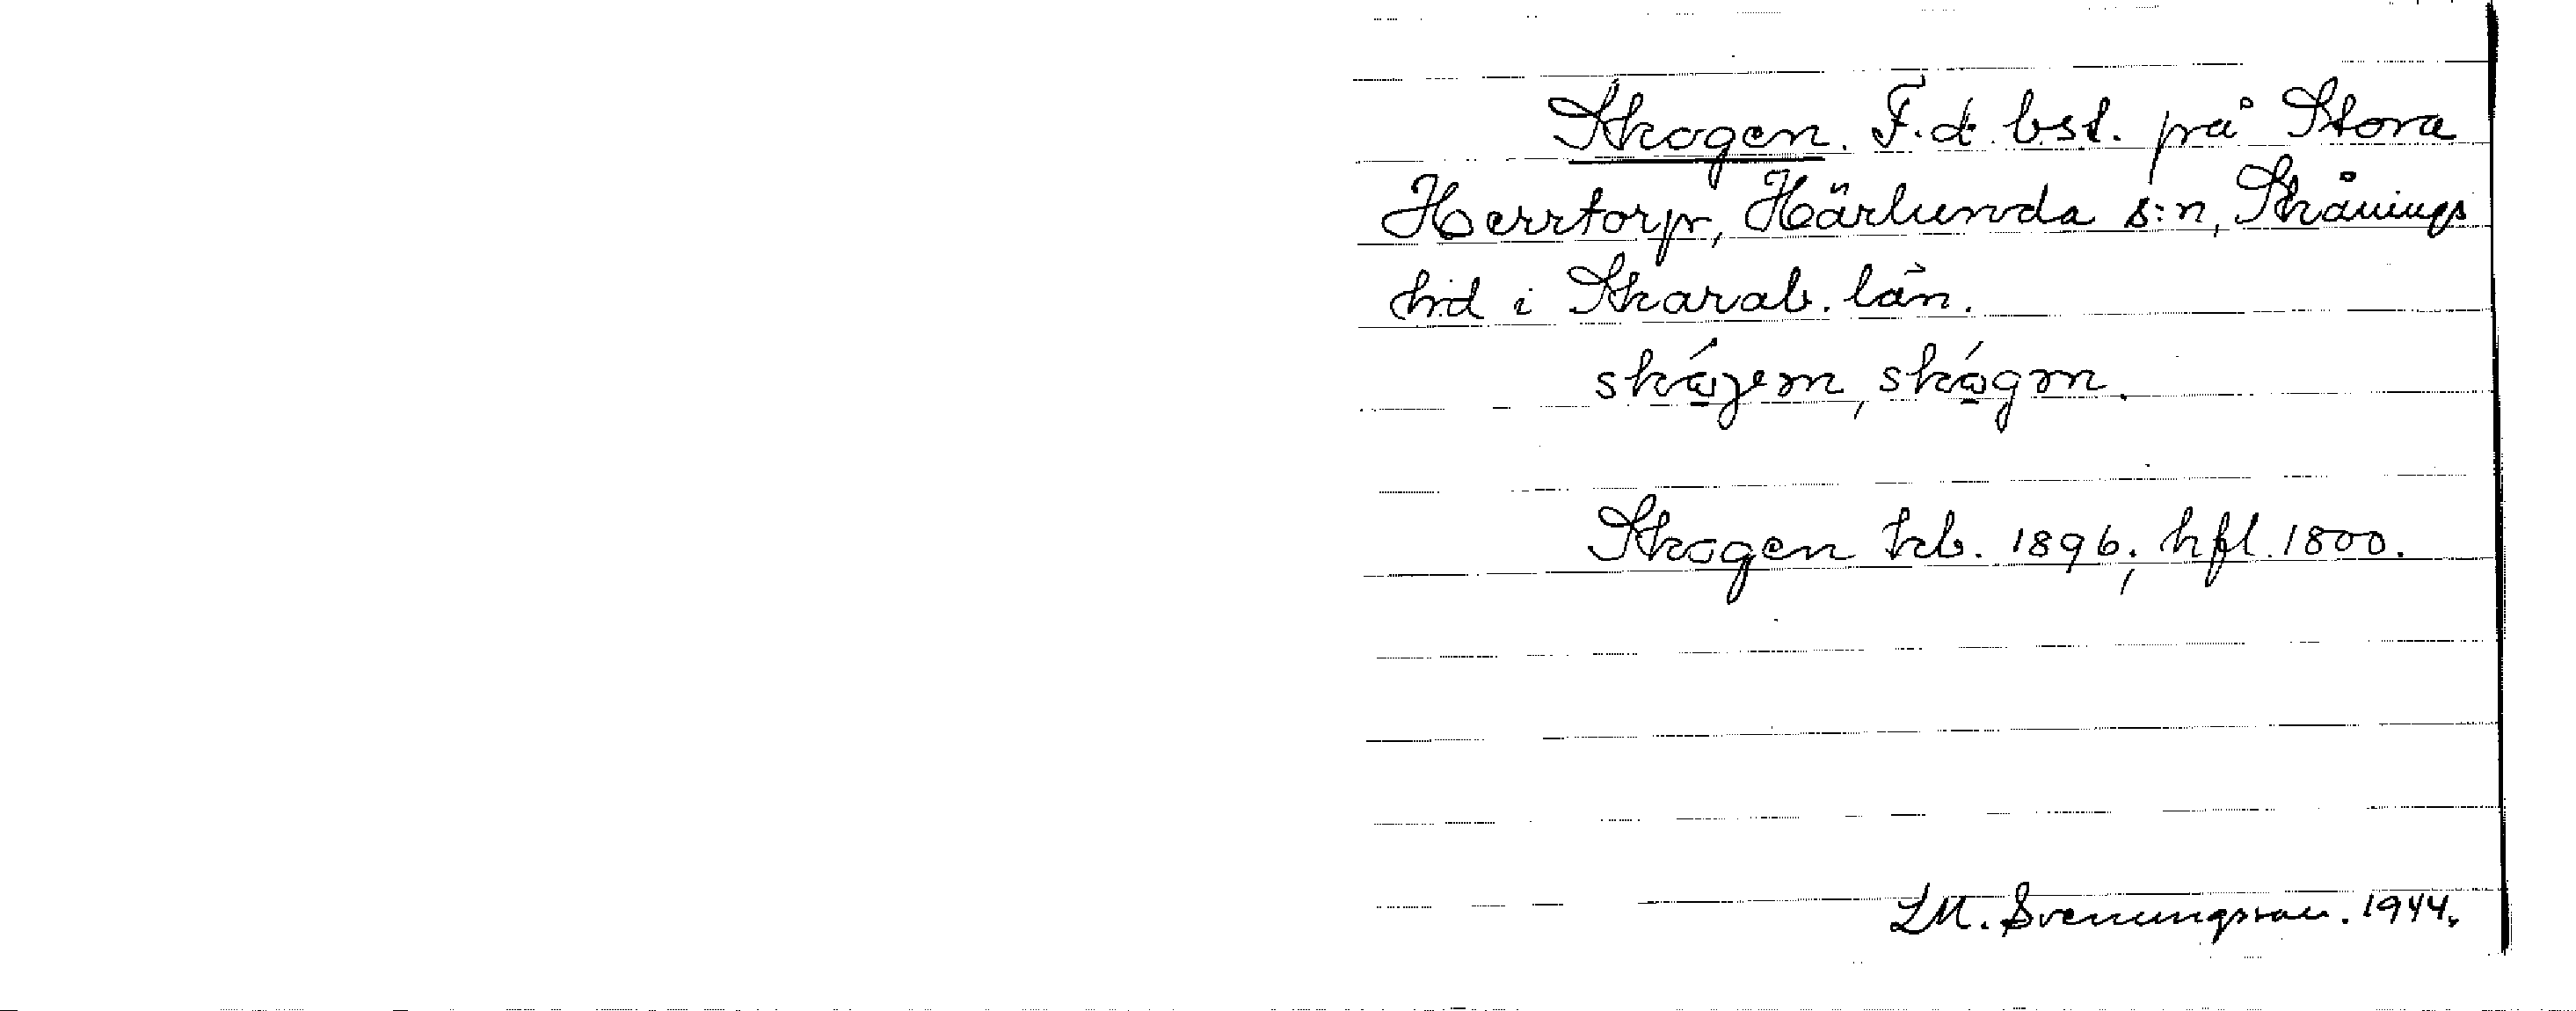 Skogen. F.d. bst. på Stora
Herrtorp, Härlunda s:n, Skånings
h:d i Skarab. län.
skógem, skógm.
Skogen kb. 1896; hfl. 1800.
LM. Svenungsson. 1944.